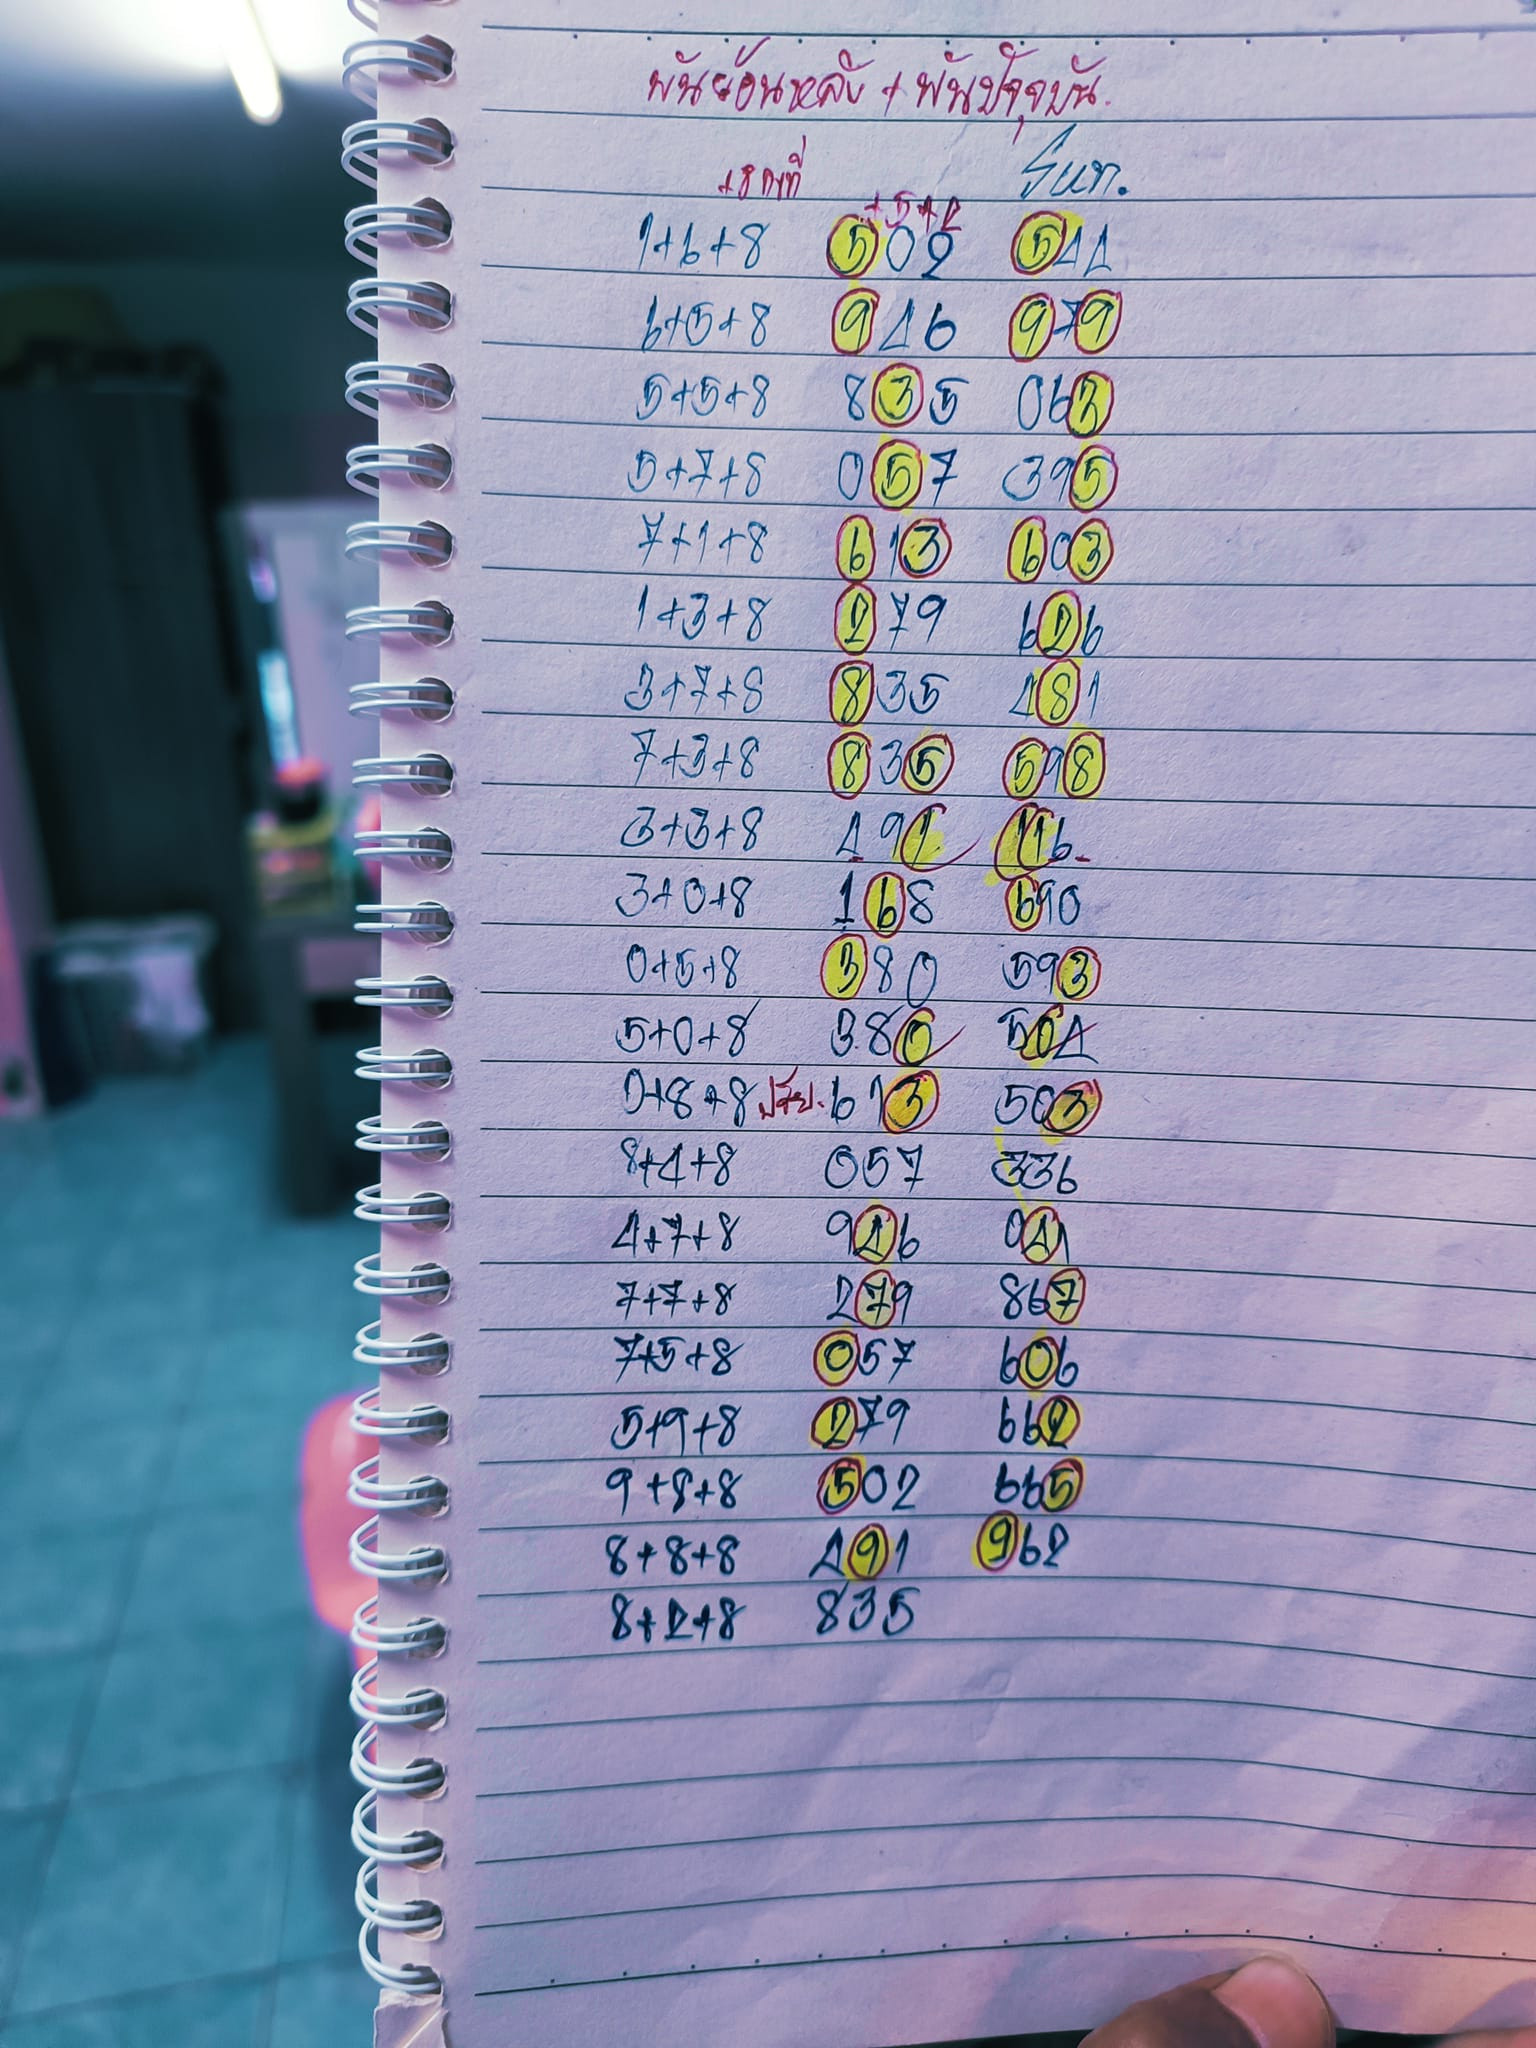 พันย้อนหลัง + พันปัจจุบัน.
+8 คงที่
+5+2
1+6+8 502 544
6+5+8 946 979
5+5+8 835 063
5+7+8 057 395
7+1+8 613 603
1+3+8 279 626
3+7+8 835 481
7+3+8 835 598
3+3+8 491 116
3+0+8 168 690
0+5+8 380 593
5+0+8 380 504
0+8+8 613 503
8+4+8 057 336
4+7+8 946 041
7+7+8 279 867
7+5+8 057 606
5+9+8 279 662
9+8+8 502 665
8+8+8 491 962
8+2+8 835